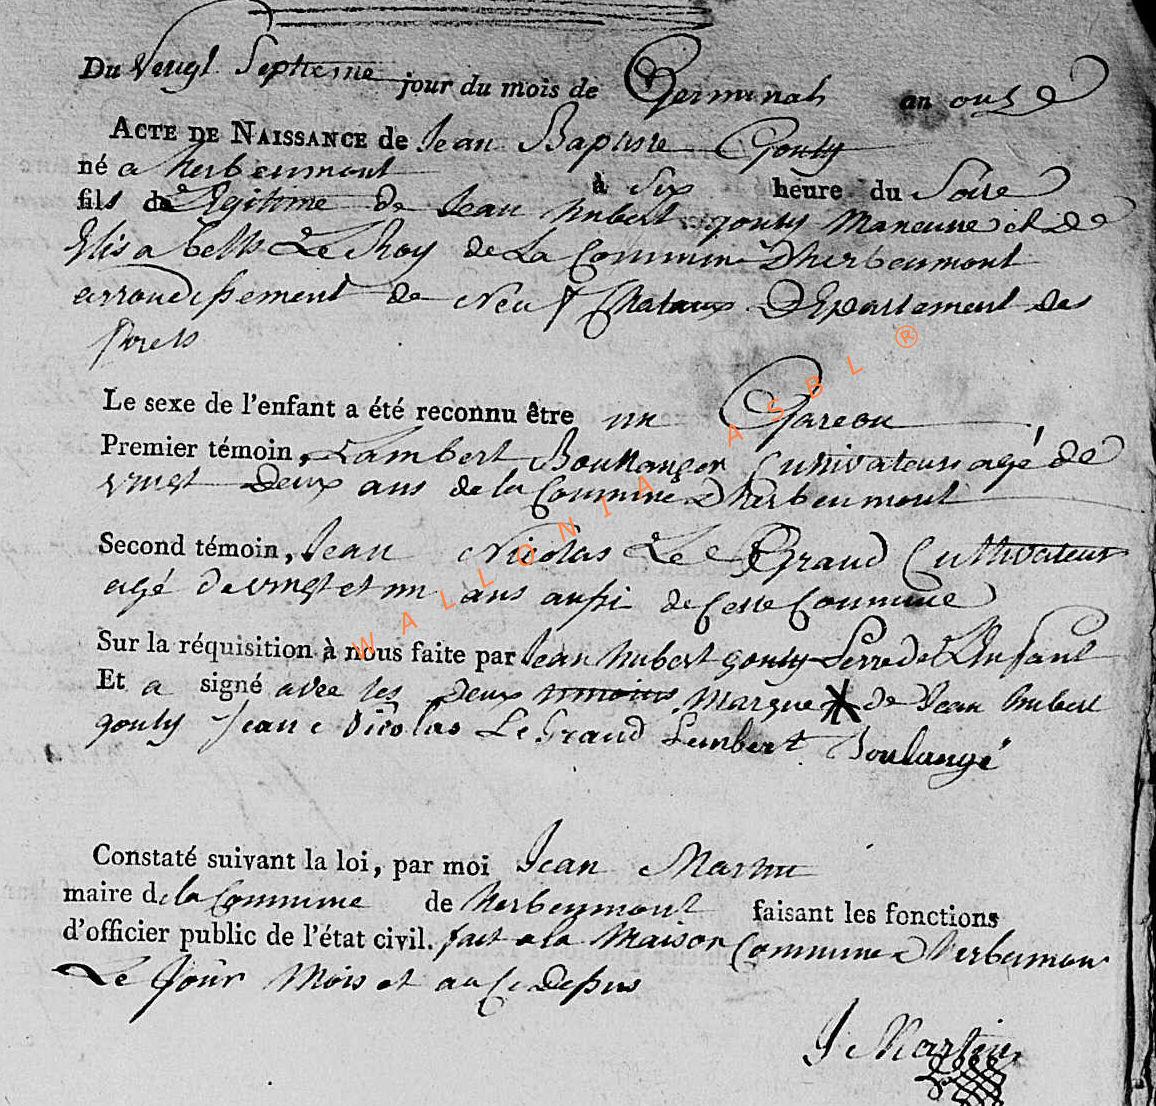 Du Vengt Septieme jour du mois de Germinal an onze
ACTE DE NAISSANCE de Jean Baptiste Gouty
né a herbeumont à Six heure du Soire
fils de Legitime de Jean hubert gouty Maneuvre et de
Elisabeth Le Roy de La Commune Dherbeumont
arrondissement de Neufchateaux Departement des
forets
Le sexe de l'enfant a été reconnu être un Garcon
Premier témoin, Lambert Boullanger Cultivateur agé de
vingt Deux ans de la Commune Dherbeumont
Second témoin, Jean Nicolas Le Grand Cultivateur
agé de vingt et un ans aussi de Cette Commune
Sur la réquisition à nous faite par Jean hubert gouty Perre de L'Enfant
Et a signé avec les Deux temoins Marque de Jean hubert
gouty Jean Nicolas Le Grand Lambert Boulangé
Constaté suivant la loi, par moi Jean Martin
maire de la Commune de herbeumont faisant les fonctions
d'officier public de l'état civil. fait a la Maison Commune Dherbeumon
Le Jour Mois et an Ci Dessus
J Martin
WALLONIA ASBL ®